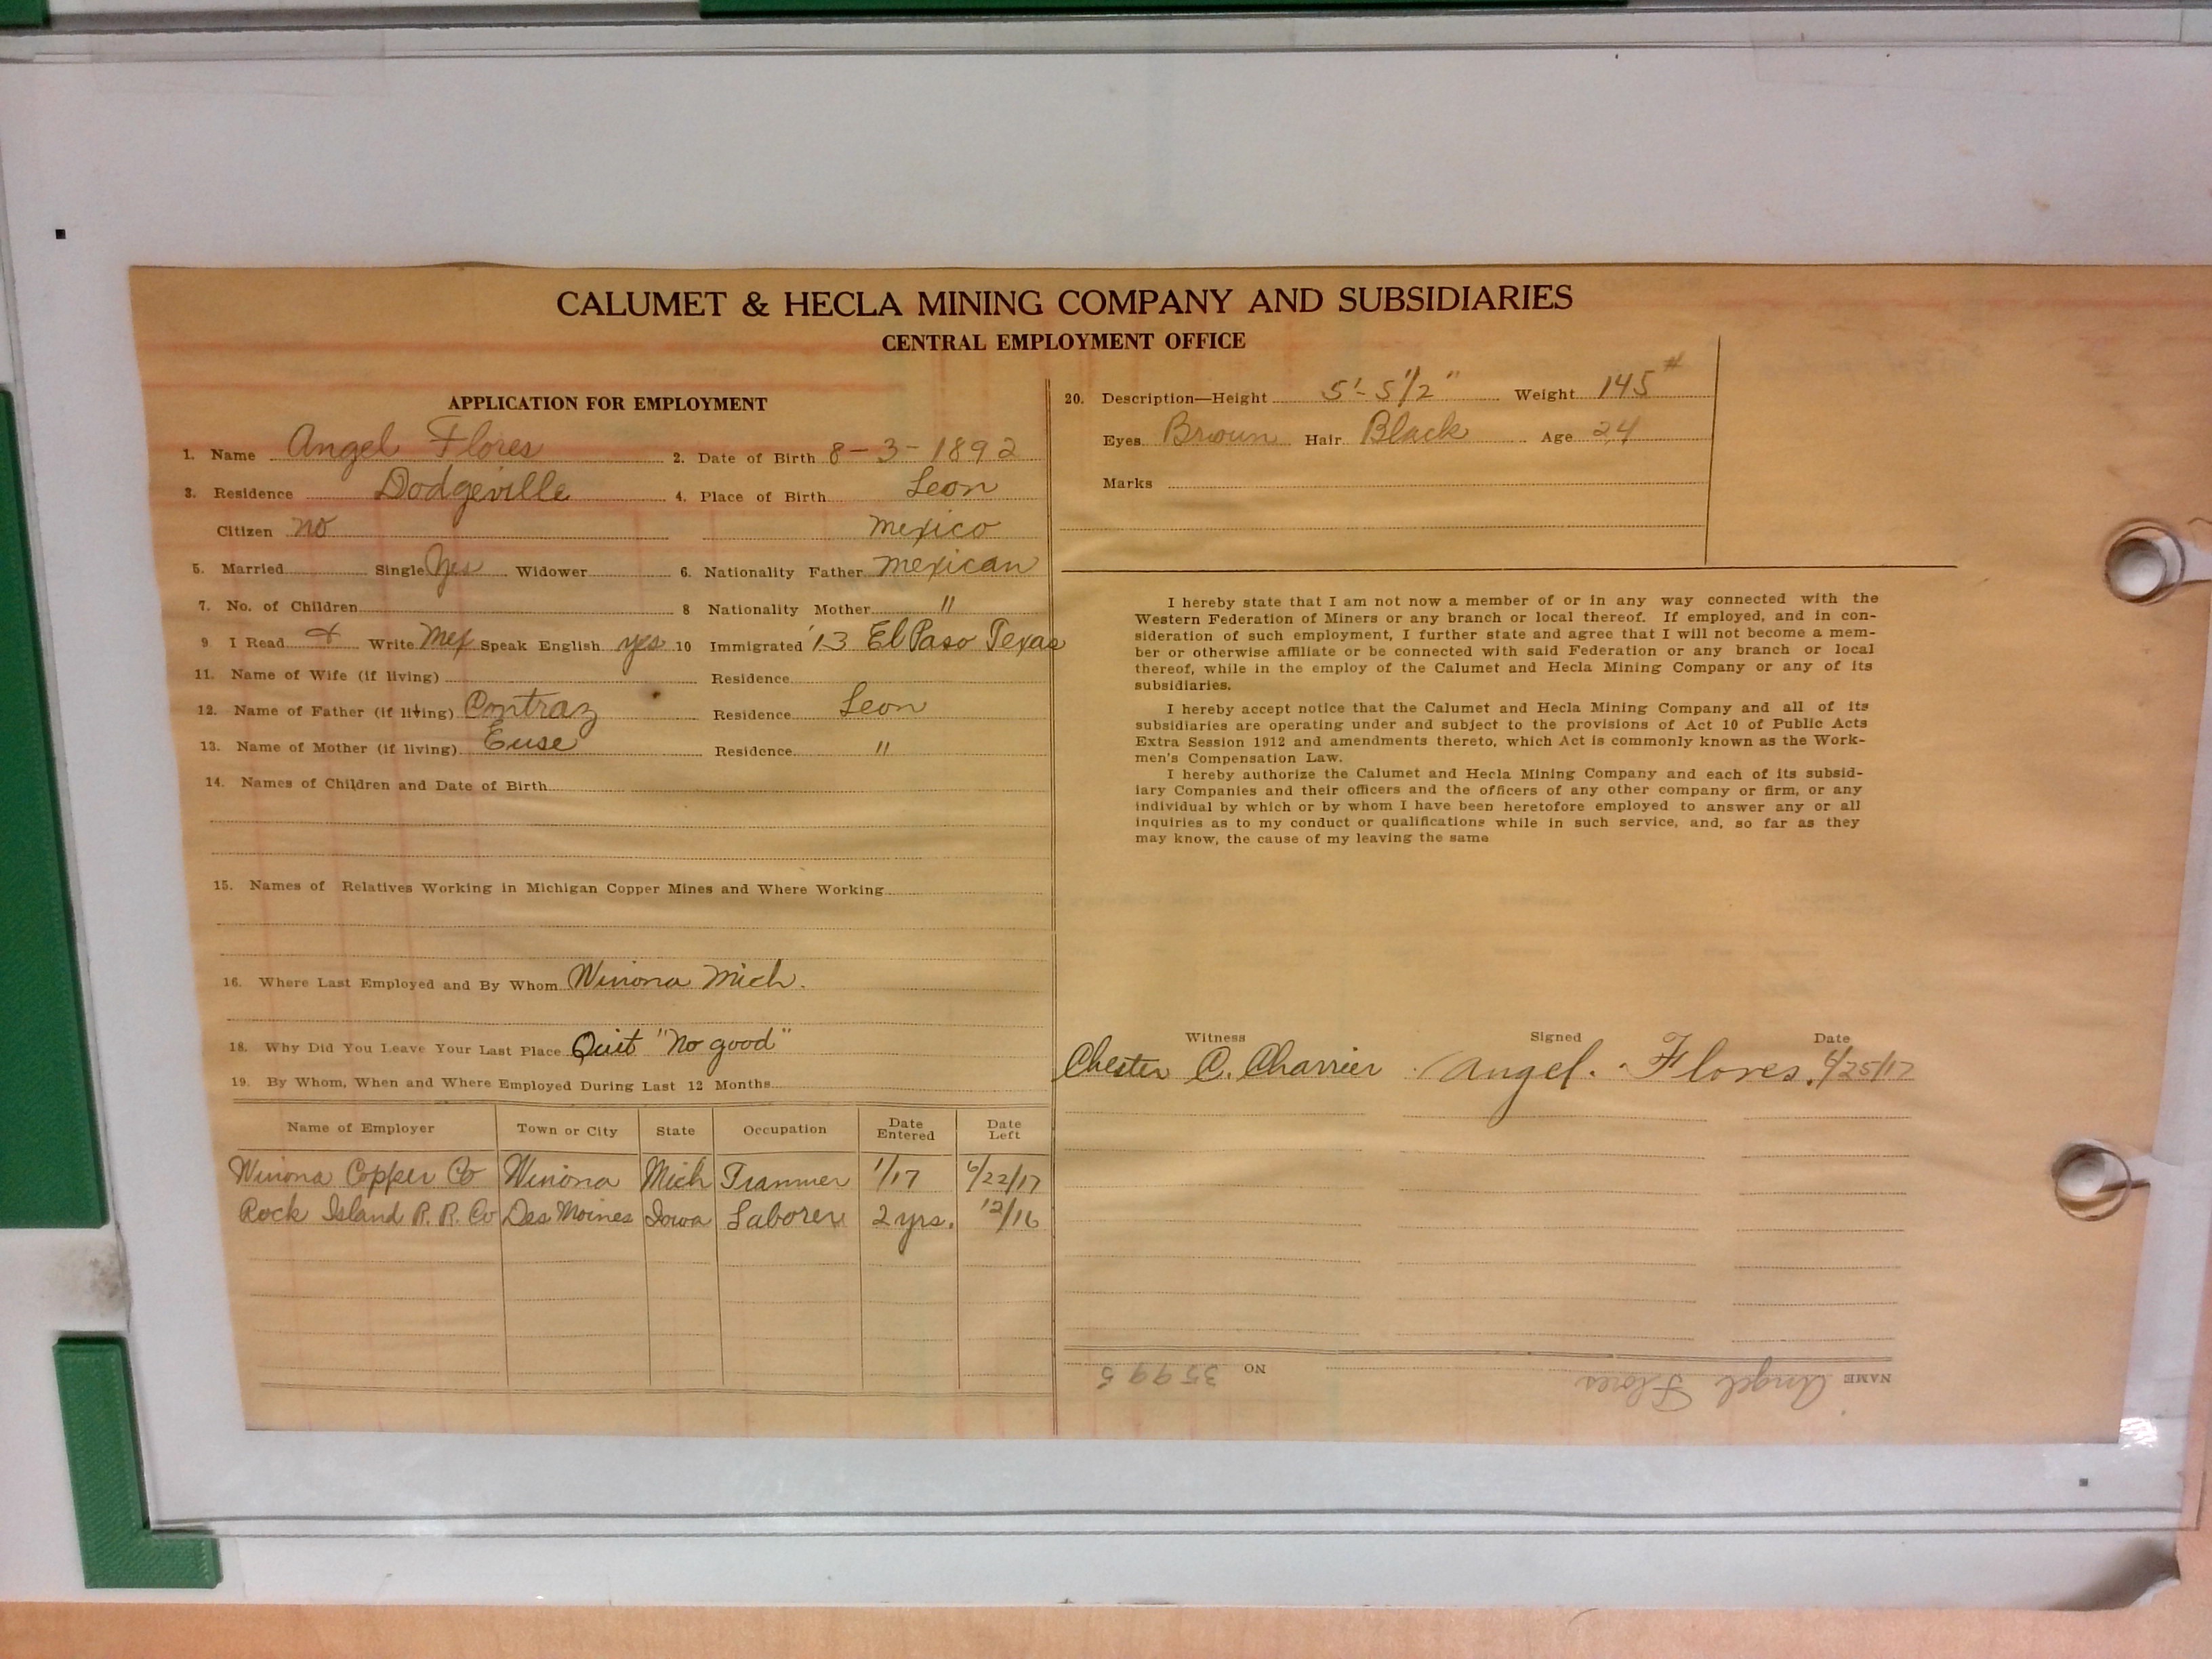 CALUMET & HECLA MINING COMPANY AND SUBSIDIARIES
CENTRAL EMPLOYMENT OFFICE
APPLICATION FOR EMPLOYMENT
1. Name Angel Flores 2. Date of Birth 8-3-1892
3. Residence Dodgeville 4. Place of Birth Leon
Citizen no Mexico
5. Married Single Yes Widower 6. Nationality Father Mexican
7. No. of Children 8 Nationality Mother "
9 I Read + Write Mex Speak English yes 10 Immigrated '13 El Paso Texas
11. Name of Wife (if living) Residence
12. Name of Father (if living) Contraz Residence Leon
13. Name of Mother (if living) Euse Residence "
14. Names of Children and Date of Birth
15. Names of Relatives Working in Michigan Copper Mines and Where Working
16. Where Last Employed and By Whom Winona Mich.
18. Why Did You Leave Your Last Place Quit "No good"
19. By Whom, When and Where Employed During Last 12 Months
Name of Employer Town or City State Occupation Date Entered Date Left
Winona Copper Co Winona Mich Trammer 1/17 6/22/17
Rock Island R. R. Co Des Moines Iowa Laborer 2 yrs. 12/16
20. Description—Height 5'-5 1/2" Weight 145#
Eyes Brown Hair Black Age 24
Marks
I hereby state that I am not now a member of or in any way connected with the
Western Federation of Miners or any branch or local thereof. If employed, and in con-
sideration of such employment, I further state and agree that I will not become a mem-
ber or otherwise affiliate or be connected with said Federation or any branch or local
thereof, while in the employ of the Calumet and Hecla Mining Company or any of its
subsidiaries.
I hereby accept notice that the Calumet and Hecla Mining Company and all of its
subsidiaries are operating under and subject to the provisions of Act 10 of Public Acts
Extra Session 1912 and amendments thereto, which Act is commonly known as the Work-
men's Compensation Law.
I hereby authorize the Calumet and Hecla Mining Company and each of its subsid-
iary Companies and their officers and the officers of any other company or firm, or any
individual by which or by whom I have been heretofore employed to answer any or all
inquiries as to my conduct or qualifications while in such service, and, so far as they
may know, the cause of my leaving the same
Witness Signed Date
Chester C. Charrier Angel. Flores. 6/25/17
NAME Angel Flores NO 35995